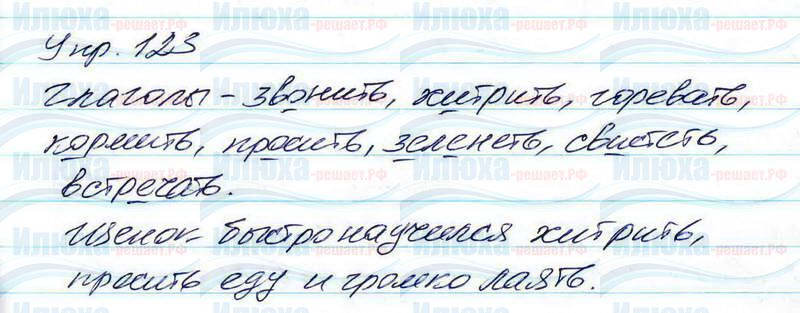 Упр. 123
Глаголы – звонить, хитрить, горевать,
кормить, просить, зеленеть, свистеть,
встречать.
Щенок быстро научился хитрить,
просить еду и громко лаять.